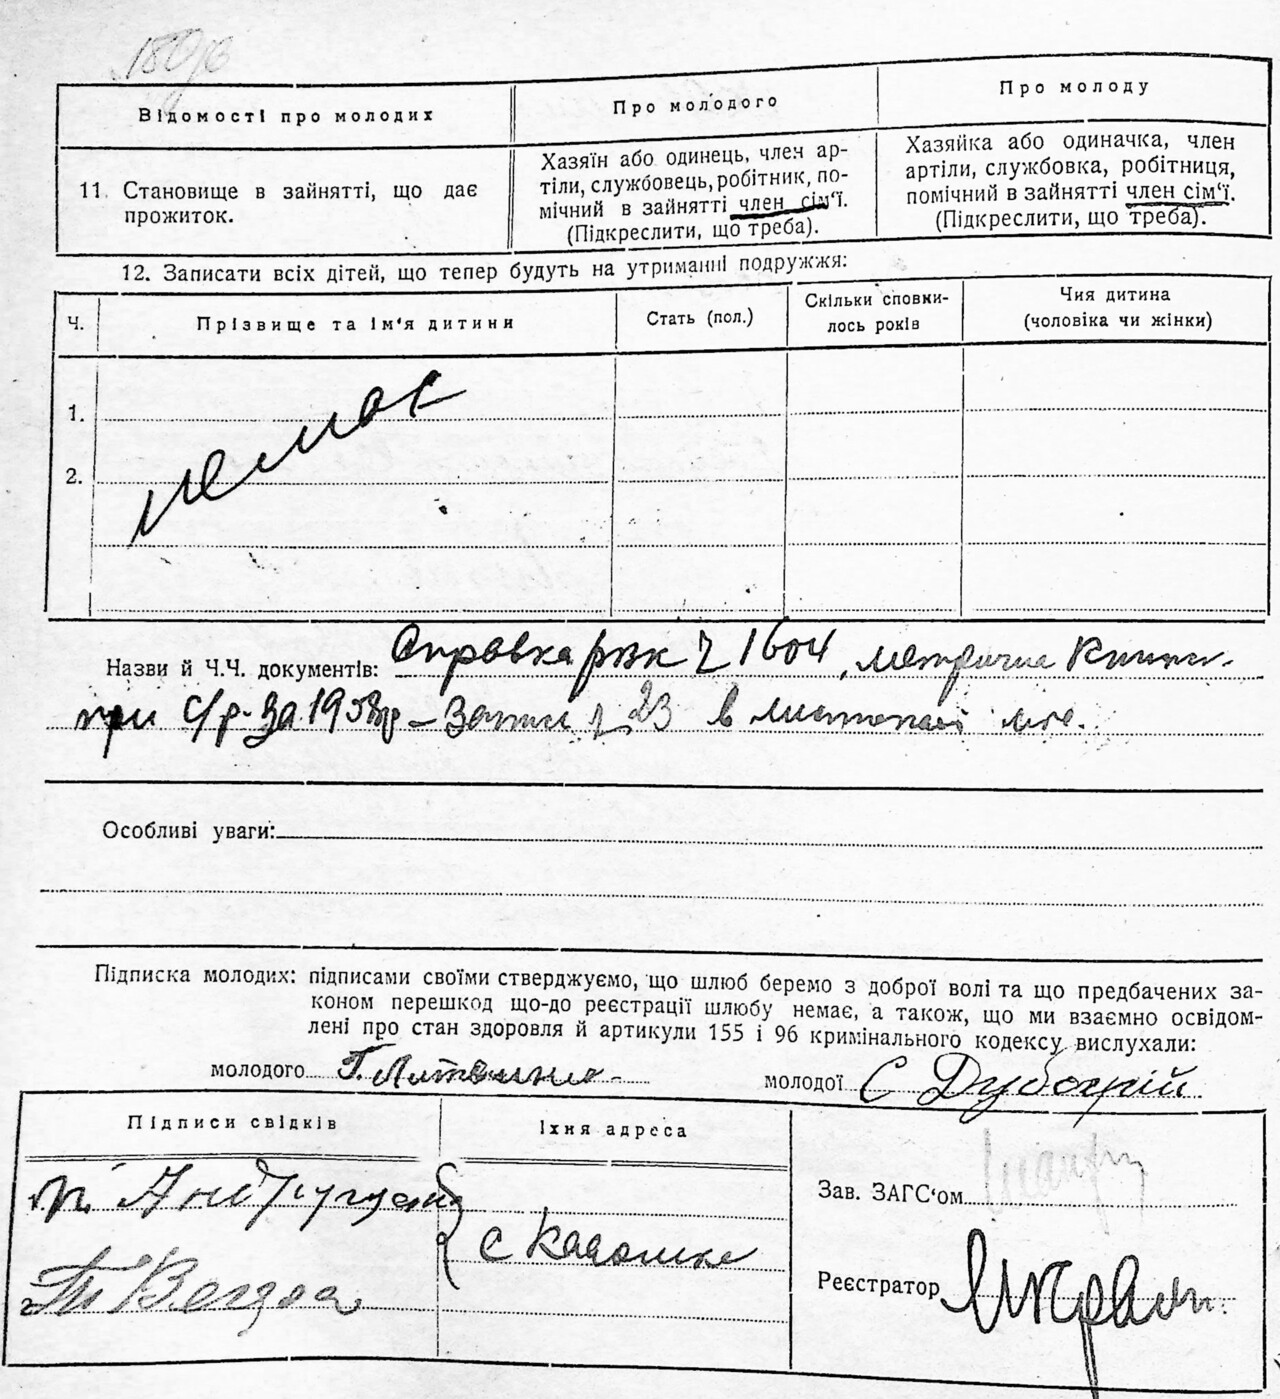 Відомості про молодих
Про молодого
Про молоду
11. Становище в зайнятті, що дає
прожиток.
Хазяїн або одинець, член ар-
тіли, службовець, робітник, по-
мічний в зайнятті член сім‘ї.
(Підкреслити, що треба).
Хазяйка або одиначка, член
артіли, службовка, робітниця,
помічний в зайнятті член сім‘ї.
(Підкреслити, що треба).
12. Записати всіх дітей, що тепер будуть на утриманні подружжя:
Ч.
Прізвище та ім‘я дитини
Стать (пол.)
Скільки сповни-
лось років
Чия дитина
(чоловіка чи жінки)
1.
2.
немає
Назви й Ч.Ч. документів: Справка рвк ч 1604, метрична Книги
при с/р. за 193 – Запис ч 23 в листопаді м-ці.
Особливі уваги:
Підписка молодих: підписами своїми стверджуємо, що шлюб беремо з доброї волі та що предбачених за-
коном перешкод що-до реєстрації шлюбу немає, а також, що ми взаємно освідом-
лені про стан здоровля й артикули 155 і 96 кримінального кодексу вислухали:
молодого Г. Литвинно
молодої С Дубогрій
Підписи свідків
Їхня адреса
с
Зав. ЗАГС‘ом
Реєстратор